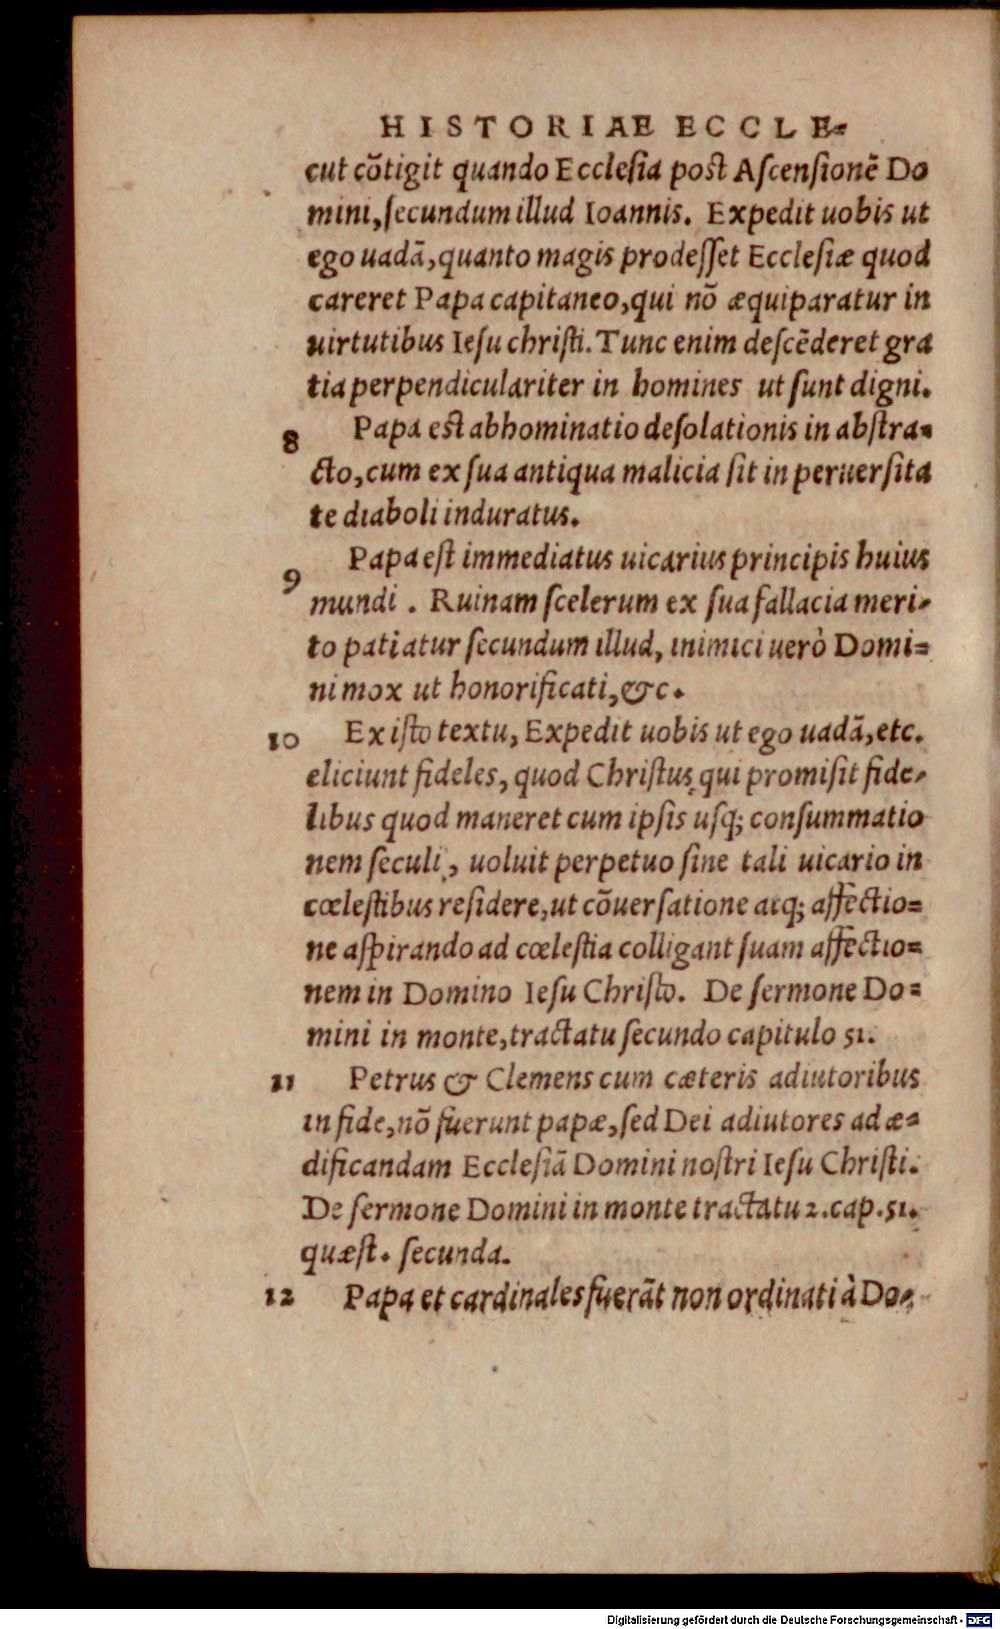 HISTORIAE ECCLE-
cut cõtigit quando Ecclesia post Ascensionẽ Do
mini, secundum illud Ioannis. Expedit uobis ut
ego uadã, quanto magis prodesset Ecclesiæ quod
careret Papa capitaneo, qui nõ æquiparatur in
uirtutibus Iesu christi. Tunc enim descẽderet gra
tia perpendiculariter in homines ut sunt digni.
8 Papa est abhominatio desolationis in abstra-
cto, cum ex sua antiqua malicia sit in peruersita
te diaboli induratus.
9 Papa est immediatus uicarius principis huius
mundi. Ruinam scelerum ex sua fallacia meri-
to patiatur secundum illud, inimici uerò Domi=
ni mox ut honorificati, &c.
10 Ex isto textu, Expedit uobis ut ego uadã, etc.
eliciunt fideles, quod Christus qui promisit fide-
libus quod maneret cum ipsis usq; consummatio
nem seculi, uoluit perpetuo sine tali uicario in
cœlestibus residere, ut cõuersatione atq; affectio=
ne aspirando ad cœlestia colligant suam affectio=
nem in Domino Iesu Christo. De sermone Do=
mini in monte, tractatu secundo capitulo 51.
11 Petrus & Clemens cum cæteris adiutoribus
in fide, nõ fuerunt papæ, sed Dei adiutores ad æ=
dificandam Ecclesiã Domini nostri Iesu Christi.
De sermone Domini in monte tractatu 2. cap. 51.
quæst. secunda.
12 Papa et cardinales fuerãt non ordinati à Do-
Digitalisierung gefördert durch die Deutsche Forschungsgemeinschaft - DFG